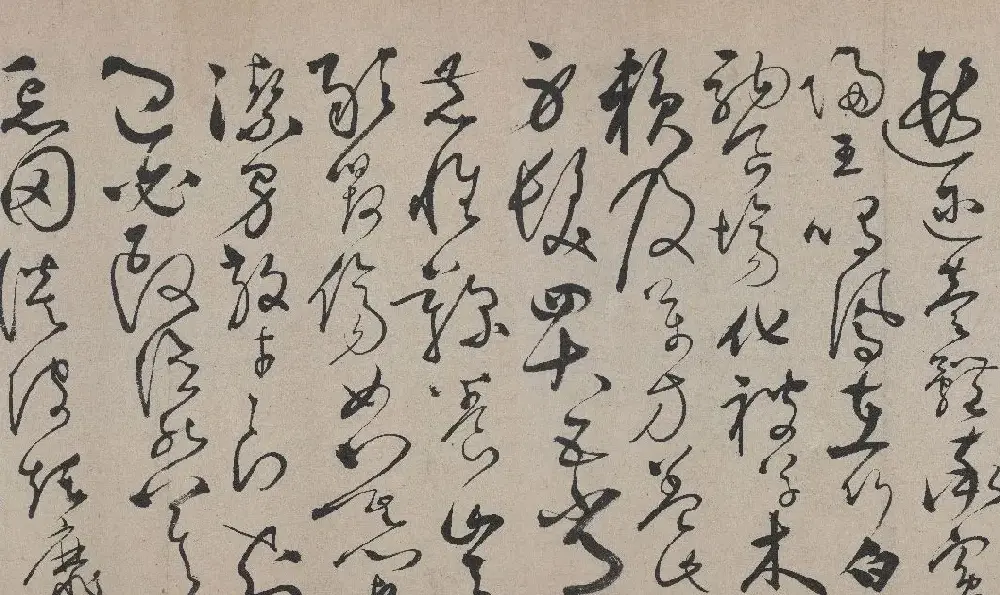 遐邇壹體率賓
歸王鳴鳳在竹白
駒食場化被草木
賴及萬方蓋此
身髮四大五常
恭惟鞠養豈
敢毀傷女慕貞
潔男效才良知
過必改得能莫
忘罔談彼短靡